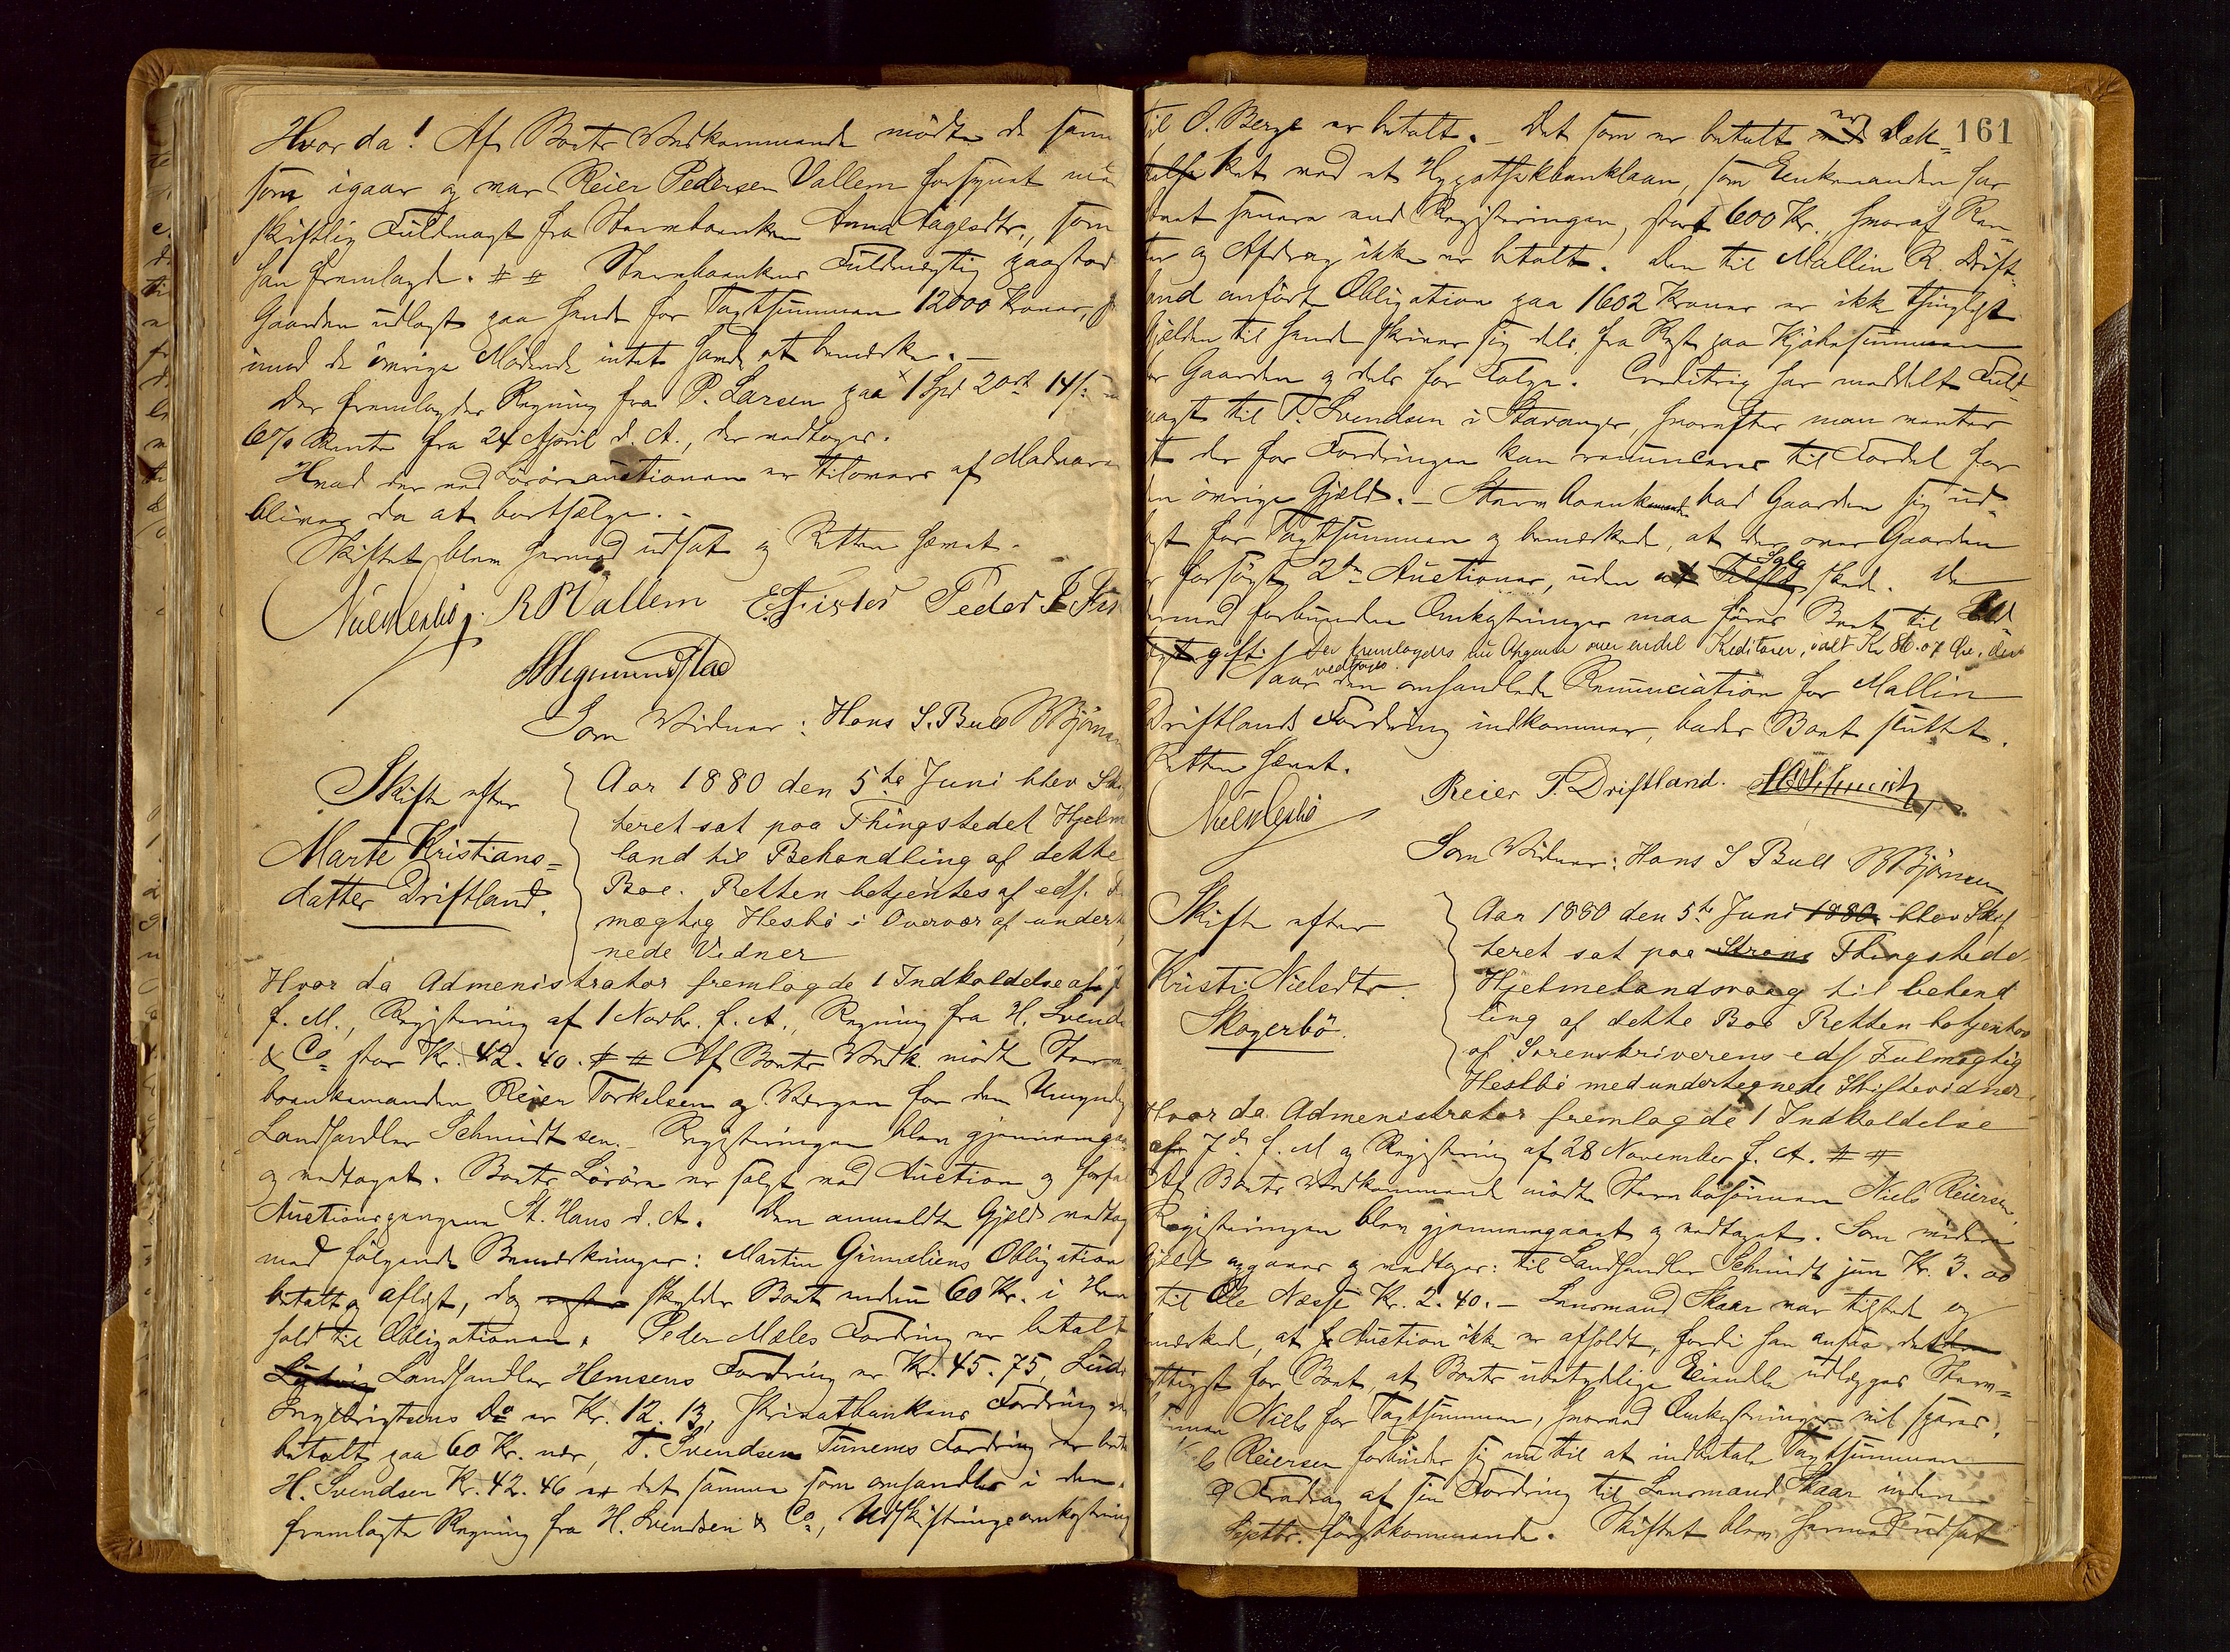 Hvor da! Af Boets Vedkommende mødte de samme
som igaar og var Reier Pedersen Vallem forsynet med
skriftlig Fuldmagt fra Stervboenken Anna Aagesdtr., som
han fremlagde. # # Stervboenkens Fuldmægtig paastod
Gaarden udlagt paa hende for Taxtsummen 12000 Kroner,
imod de øvrige Mødende intet havde at bemærke. –
Der fremlagdes Regning fra P. Larsen paa 1 Spd 2 ort 14 s.
6 % Rente fra 24 April d. A., der vedtoges.
Hvad der ved Løsøreauctionen er tilovers af Madvarer
bliver da at bortsælge. –
Skiftet blev hermed udsat og Retten hævet.
R P Vallem E. Fister Peder
Sigmundstad
Som Vidner: Hans S. Bull B Bjørnsen
Skifte efter
Marte Kristians=
datter Driftland.
Aar 1880 den 5te Juni blev Skif
teret sat paa Thingstedet Hjelme
land til Behandling af dette
Boe. Retten betjentes af edsf.
mægtig Hesbø i Overvær af underteg
nede Vidner
Hvor da Admenistrator fremlagde 1 Indkaldelse af 7
f. M., Registering af 1 Novbr. f. A., Regning fra H. Svendsen
& Co stor Kr. 42.40. # # Af Boets Vedk. mødte Sterv
boenkemanden Reier Torkelsen og Vergen for den Umyndige
Landhandler Schmidt sen. – Registeringen blev gjennemgaaet
og vedtaget. Boets Løsøre er solgt ved Auction og forfal
Auctionspengene St. Hans d. A. Den anmeldte Gjeld vedtoges
med følgende Bemærkninger: Martin Obligation
betalt og aflyst, dog skylder Boet endnu 60 Kr. i Hen
hold til Obligationen. Peder Mæles Fordring er betalt
Ludvig Landhandler Hemsens Fordring er Kr. 45.75, Ludv
Ingebrigtsens Do er Kr. 12.13, Privatbankens Fordring er
betalt paa 60 Kr. nær, T. Svendsen Tunems Fordring er betalt
H. Svendsen Kr. 42.46 er det samme som omhandles i den
fremlagte Regning fra H. Svendsen & Co, Udskiftningsomkostning
161
til O. Berge er betalt. – Det som er betalt er dæk=
ket ved et Hypothekbanklaan, som Enkemanden har
senere end Registeringen, stort 600 Kr., hvoraf Ren
ter og Afdrag ikke er betalt. Den til Mallin R. Drift=
land anførte Obligation paa 1602 Kroner er ikke thinglyst
Gjelden til hende skriver sig dels fra Rest paa Kjøbesummen
for Gaarden og dels for Følge. Creditrix har meddelt Fuld=
magt til T. Svendsen i Stavanger, hvorefter man venter
at der for Fordringen kan renunceres til Fordel for
den øvrige Gjeld. – Stervboenkemanden bad Gaarden sig ud=
lagt for Taxtsummen og bemærkede, at der over Gaarden
er forsøgt 2de Auctioner, uden at Tilslag Salg skede. De
dermed forbundne Omkostninger maa føres Boet til Ud
gift. Der fremlagdes en Opgave over endel Kreditorer, ialt Kr 80.07 Øre, den
vedtoges.
Naar den omhandlede Renunciation for Mallin
Driftlands Fordring indkommer, bedes Boet sluttet.
Retten hævet.
Reier T. Driftland. Schmidt
Som Vidner: Hans S Bull B Bjørnsen
Skifte efter
Kristi Nielsdtr.
Skogerbø.
Aar 1880 den 5te Juni 1880 blev Skif
teret sat paa Strand Thingstedet
Hjelmelandsvaag til behand
ling af dette Boe Retten betjentes
af Sorenskriverens edsf Fulmægtig
Hesbø med undertegnede Skiftevidner
Hvor da Admenistrator fremlagde 1 Indkaldelse
af 7de f. M og Registering af 28 November f. A. # #
Af Boets Vedkommende mødte Stervbosønnen Niels Reiersen.
Registeringen blev gjennemgaaet og vedtaget. Som videre
Gjeld opgaves og vedtoges: til Landhandler Schmidt jun Kr. 3.00
til Ole Næsse Kr. 2.40. – Lensmand Skaar var tilstede og
bemærkede, at Auction ikke er afholdt, fordi han ansaa det
for Boet, at Boets ubetydelige Eiendele udlægges Sterv=
Niels for Taxtsummen, hvorved Omkostninger vil spares.
Niels Reiersen forbinder sig nu til at indbetale Taxtsummen
Fradrag af sin Fordring til Lensmand Skaar inden
Septbr. førstkommende. Skiftet blev hermed udsat